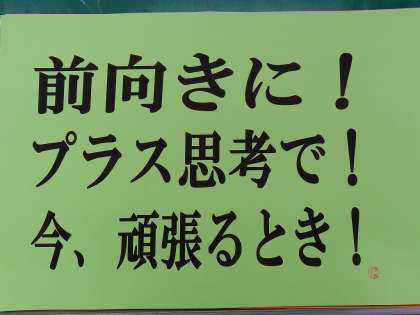 前向きに!
プラス思考で!
今、頑張るとき!